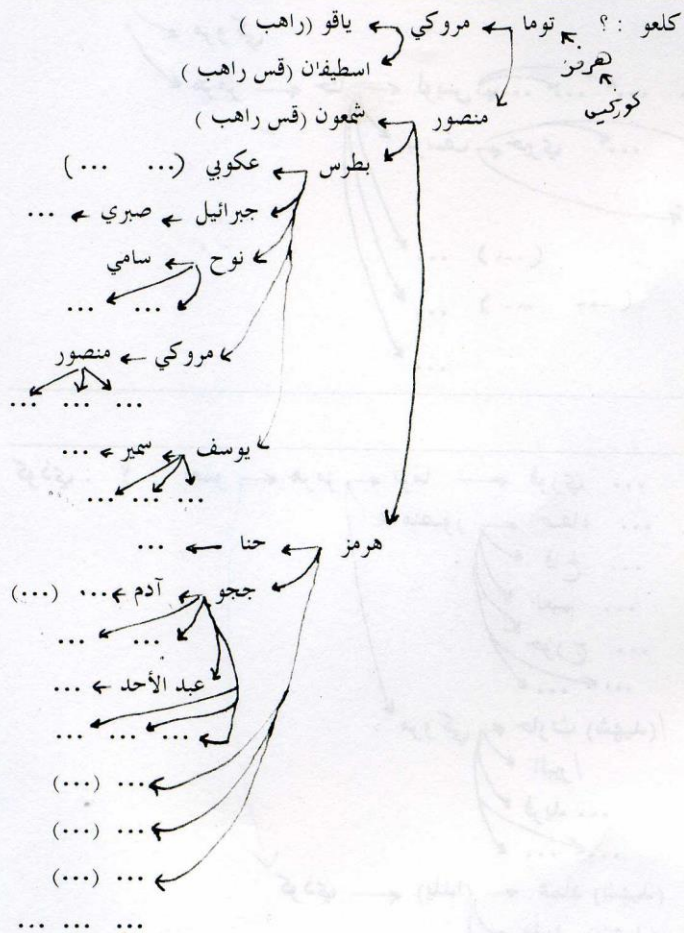 كلعو : ؟ توما ← مروكي ← ياقو (راهب )
هرمز
كوركيس
اسطيفان (قس راهب )
منصور ← شمعون (قس راهب )
بطرس ← عكوبي (... ... )
جبرائيل ← صبري ← ...
نوح ← سامي
... ...
مروكي ← منصور
... ... ...
يوسف ← سمير ← ...
... ... ...
هرمز ← حنا ← ...
ججو ← آدم ← ... (...)
... ...
عبد الأحد ← ...
... ... ...
... (...)
... (...)
... (...)
... ... ...